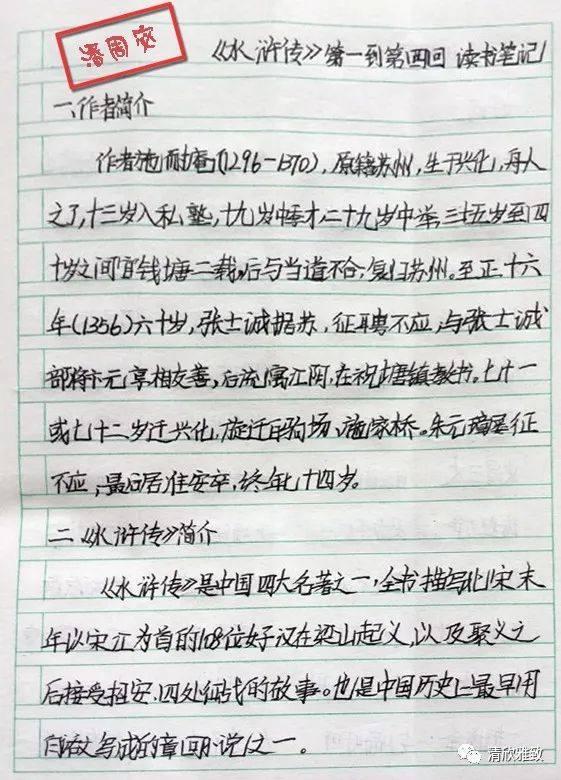 潘周密
《水浒传》第一到第四回 读书笔记
一、作者简介
作者施耐庵(1296-1370),原籍苏州,生于兴化,舟人
之子,十三岁入私塾,十九岁中秀才,二十九岁中举,三十五岁至四
十岁之间官钱塘二载,后与当道不合,复归苏州。至正十六
年(1356)六十岁,张士诚据苏,征聘不应,与张士诚
部将卞元亨相友善,后流寓江阴,在祝塘镇教书。七十一
或七十二岁迁兴化,旋迁白驹场、施家桥。朱元璋屡征
不应,最后居淮安卒,终年七十四岁。
二《水浒传》简介
《水浒传》是中国四大名著之一,全书描写北宋末
年以宋江为首的108位好汉在梁山起义,以及聚义之
后接受招安、四处征战的故事。也是中国历史上最早用
白话文写成的章回小说之一。
清欣雅致